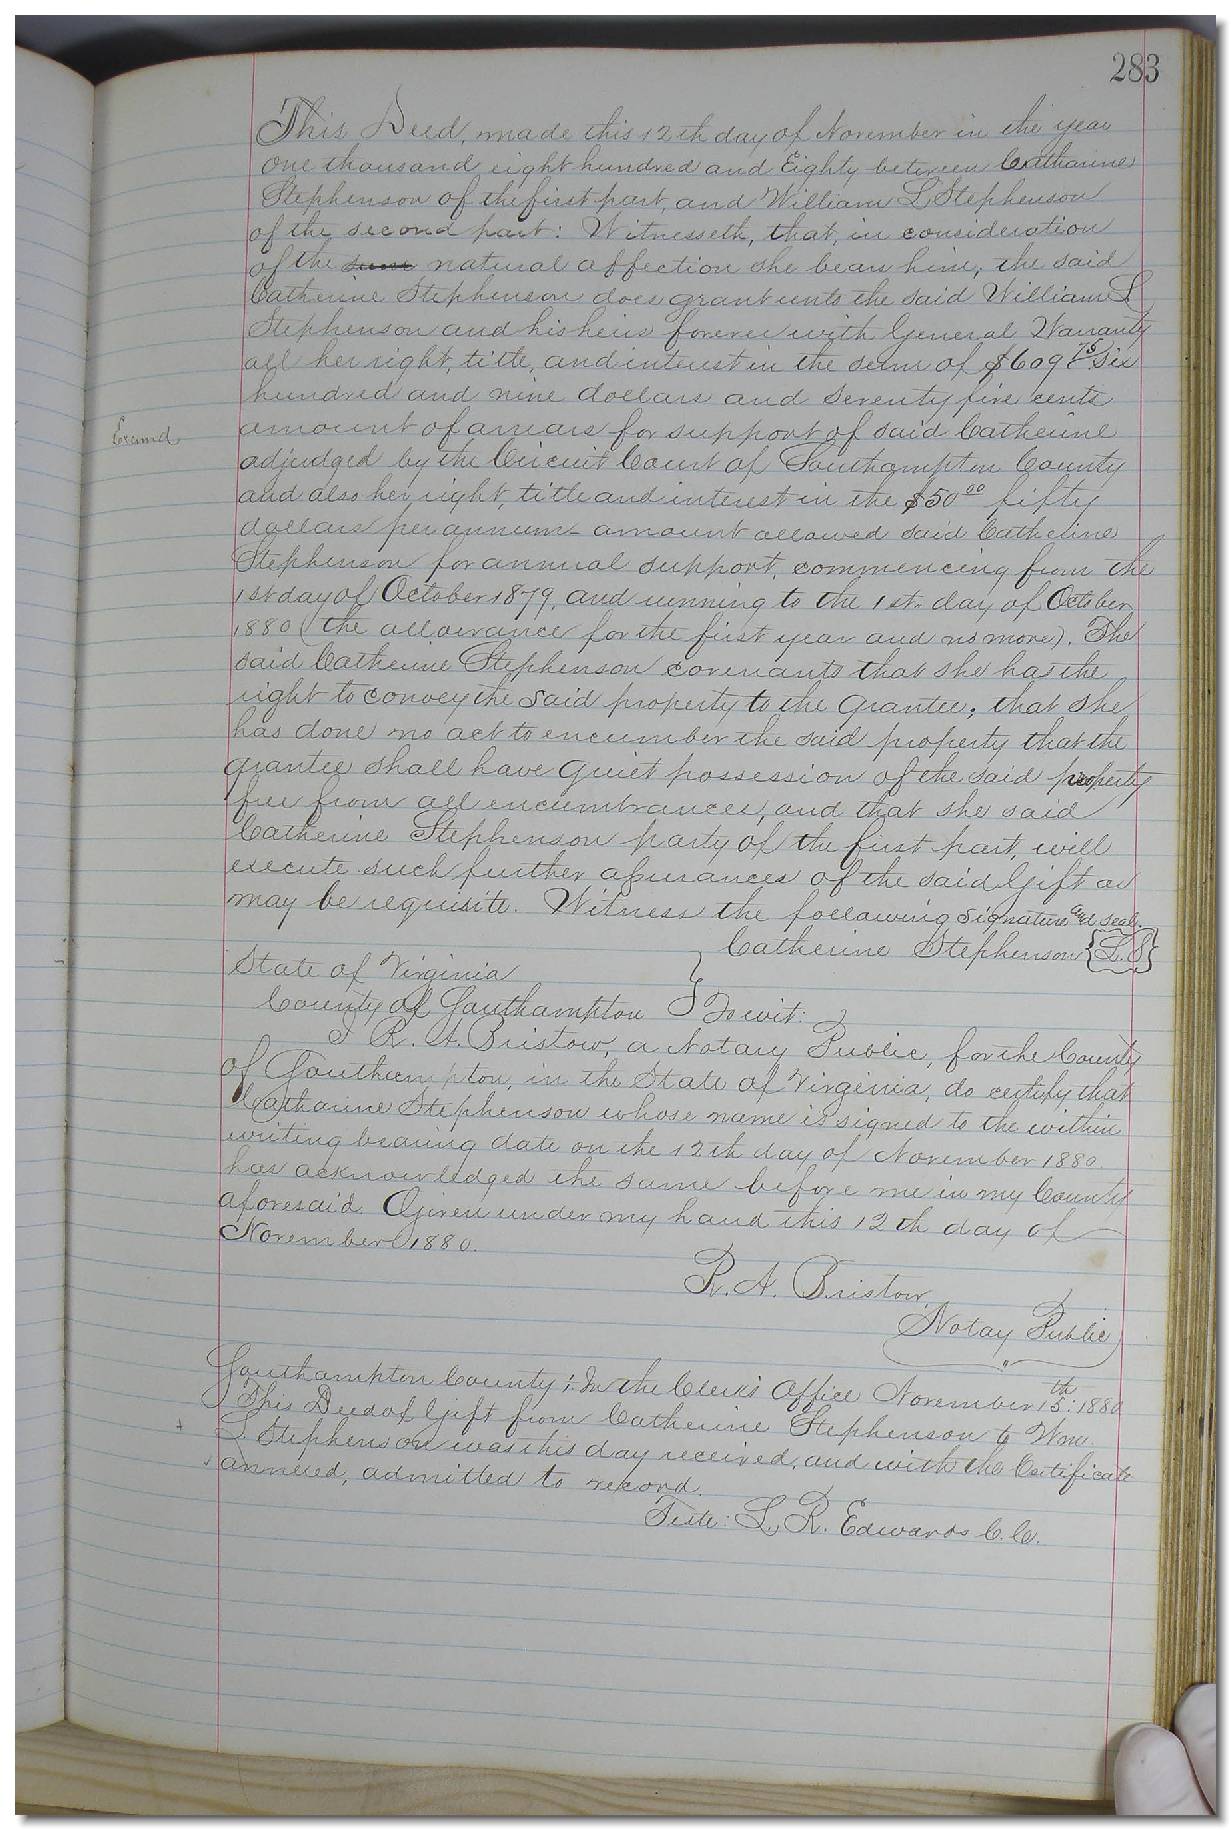 283
This Deed, made this 12th day of November in the year
one thousand eight hundred and Eighty between Catharine
Stephenson of the first part, and William L Stephenson
of the second part: Witnesseth, that, in consideration
of the sum natural affection she bears him, the said
Catherine Stephenson does grant unto the said William L
Stephenson and his heirs forever with General Warranty
all her right, title, and interest in the sum of $609 75 Six
hundred and nine dollars and seventy five cents
Examd
amount of arrears for support of said Catherine
adjudged by the Circuit Court of Southampton County
and also her right, title and interest in the $50 00 fifty
dollars per annum - amount allowed said Catherine
Stephenson for annual support, commencing from the
1st day of October 1879, and running to the 1st day of October
1880 (the allowance for the first year and no more). The
said Catherine Stephenson covenants that she has the
right to convey the said property to the grantee; that she
has done no act to encumber the said property that the
grantee shall have quiet possession of the said property
free from all encumbrances, and that she said
Catherine Stephenson party of the first part, will
execute such further assurances of the said Gift as
may be requisite. Witness the following signature and seal.
Catherine Stephenson {L.S}
State of Virginia
County of Southampton } To wit:
I R. A. Bristow, a Notary Public, for the County
of Southampton, in the State of Virginia, do certify that
Catharine Stephenson whose name is signed to the within
writing bearing date on the 12th day of November 1880.
has acknowledged the same before me in my County
aforesaid. Given under my hand this 12th day of
November 1880.
R. A. Bristow,
Notay Public
Southampton County; In the Clerk's Office November 15th: 1880
This Deed of Gift from Catherine Stephenson to Wm.
L Stephenson was this day received, and with the Certificate
annexed, admitted to record.
Teste: L. R. Edwards C. C.